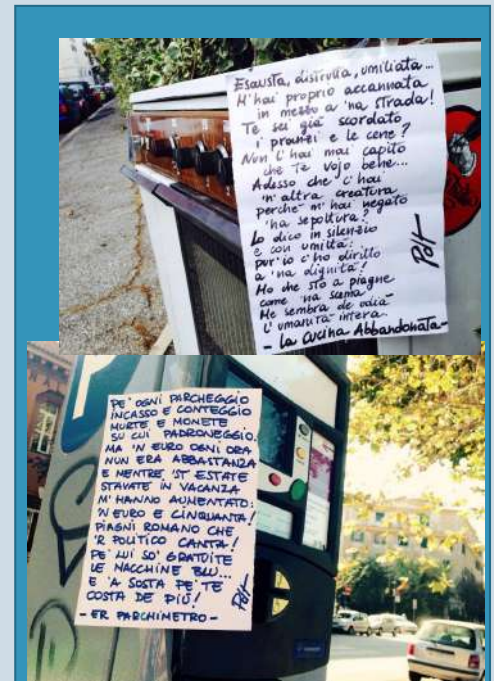 Esausta, distrutta, umiliata...
M'hai proprio accannata
in mezzo a 'na strada!
Te sei già scordato
i pranzi e le cene?
Nun l'hai mai capito
che te vojo bene...
Adesso che c'hai
'n'altra creatura
perchè m'hai negato
'na sepoltura?
Lo dico in silenzio
e con umiltà:
pur'io c'ho diritto
a 'na dignità!
Mo che sto a piagne
come 'na scema
Me sembra de odià
l'umanità intera.
- La cucina Abbandonata -
Pótt
PE' OGNI PARCHEGGIO
INCASSO E CONTEGGIO
MURTE E MONETE
SU CUI PADRONEGGIO.
MA 'N EURO OGNI ORA
NUN ERA ABBASTANZA
E MENTRE 'ST'ESTATE
STAVATE IN VACANZA
M'HANNO AUMENTATO:
'N EURO E CINQUANTA!
PIAGNI ROMANO CHE
'R POLITICO CANTA!
PE' LUI SO' GRATUITE
LE MACCHINE BLU...
E 'A SOSTA PE' TE
COSTA DE PIÙ!
- ER PARCHIMETRO -
Pótt